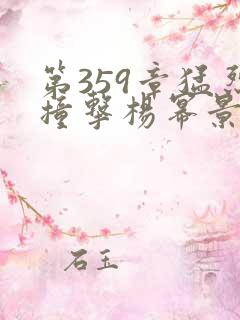 第359章猛烈
撞擊楊冪景
石玉